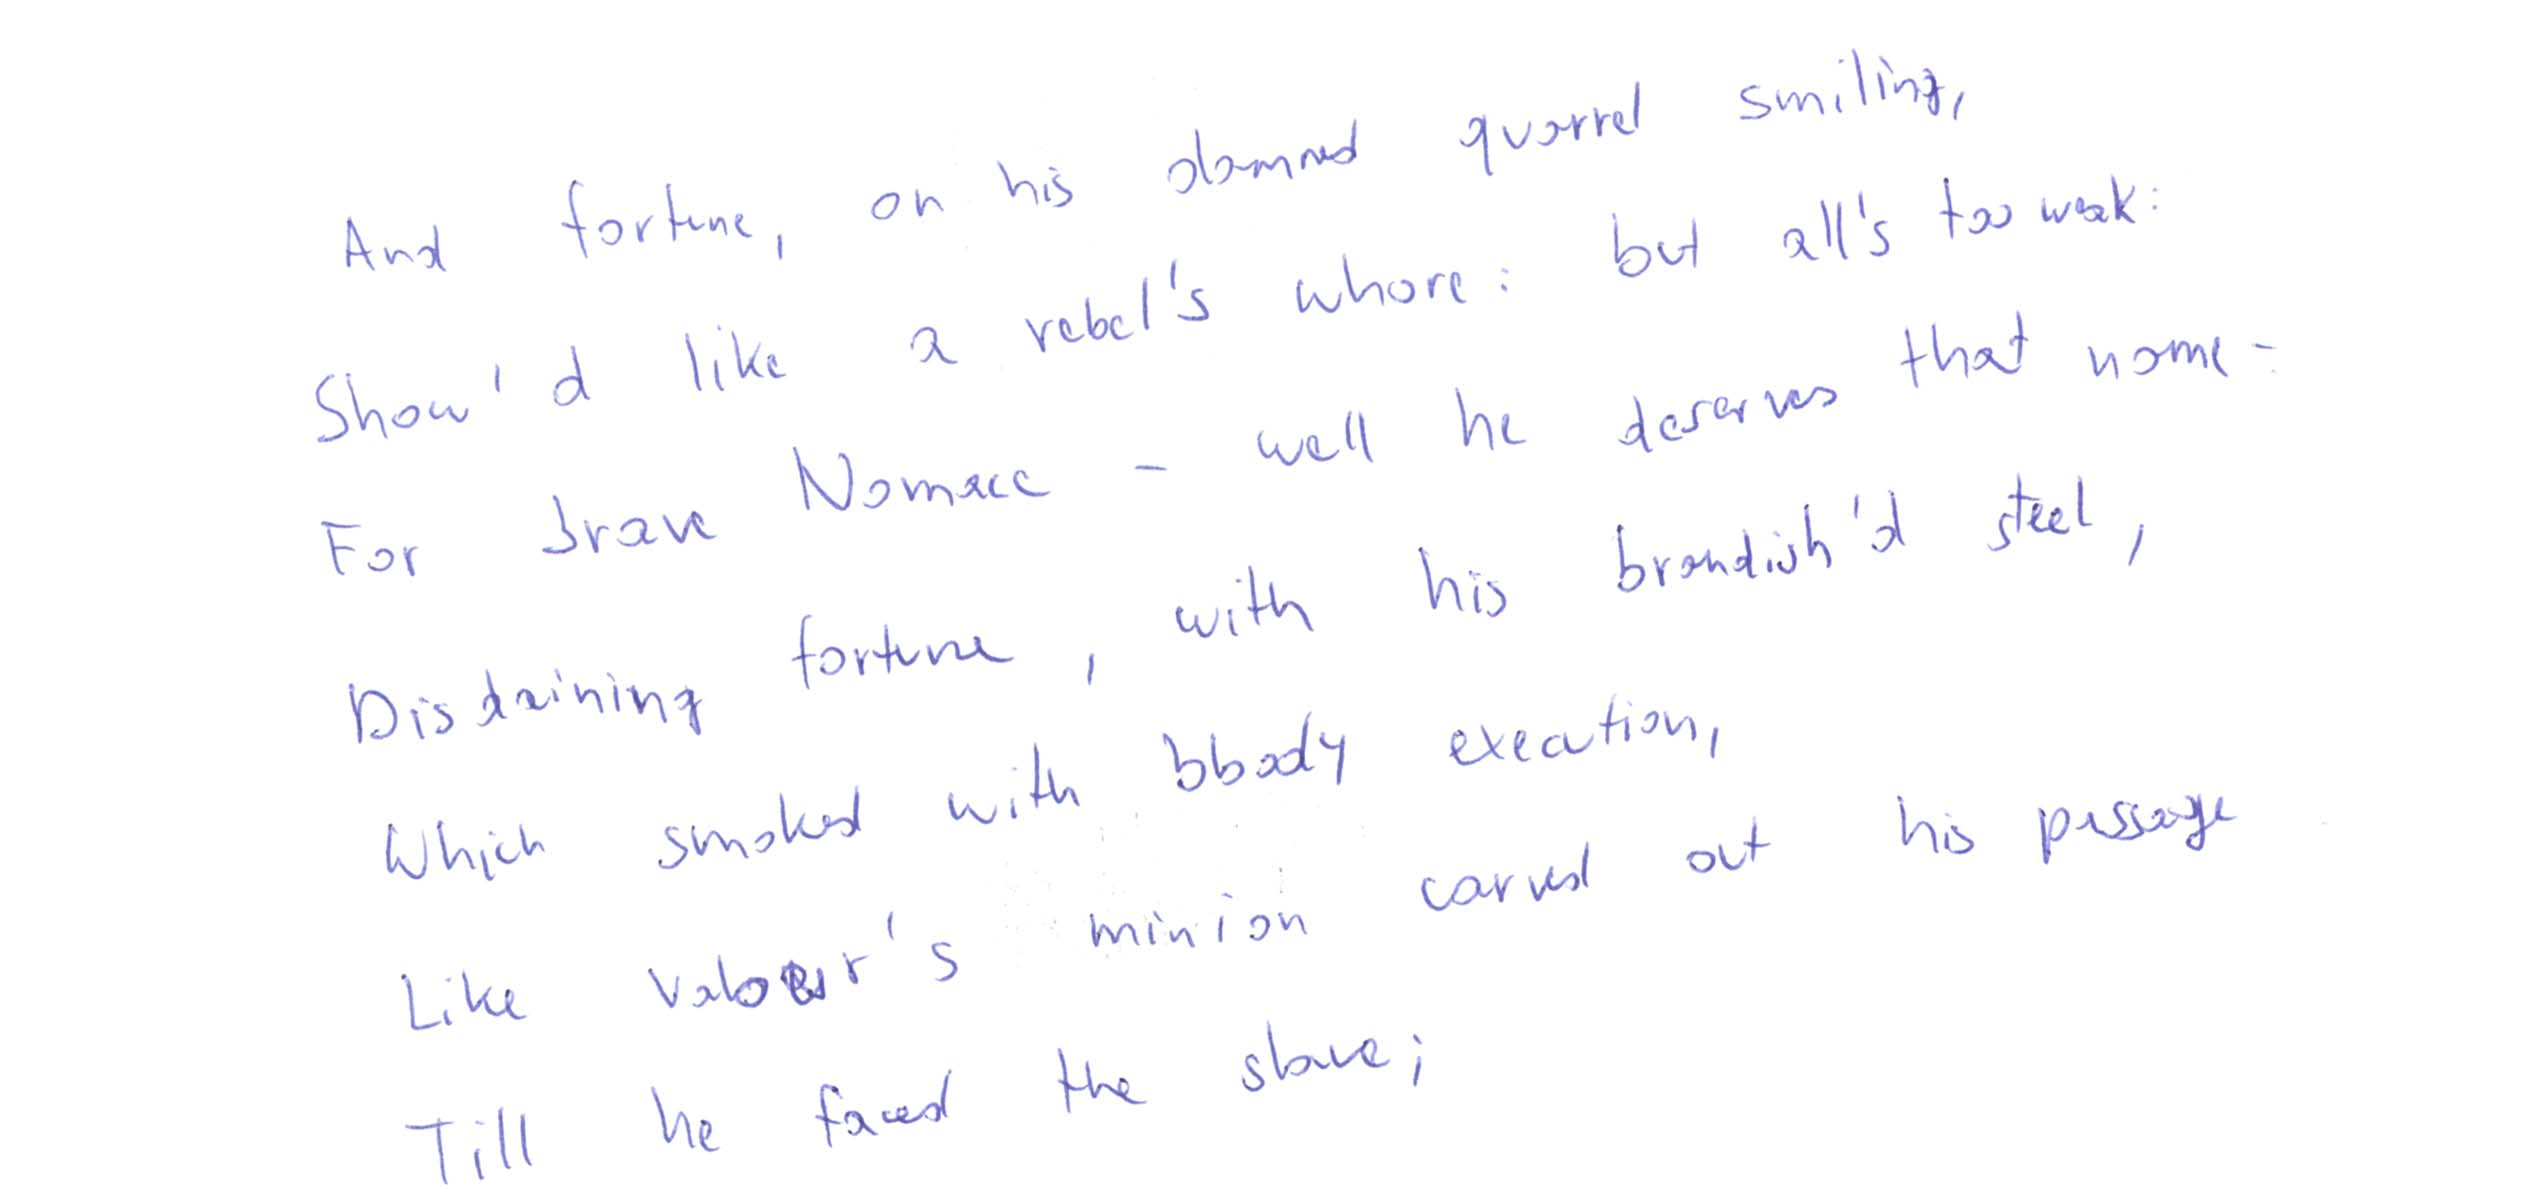 And fortune, on his damned quarrel smiling,
Show'd like a rebel's whore: but all's too weak:
For brave Nomace - well he deserves that name -
Disdaining fortune, with his brandish'd steel,
Which smoked with bloody execution,
Like valour's minion carved out his passage
Till he faced the slave;